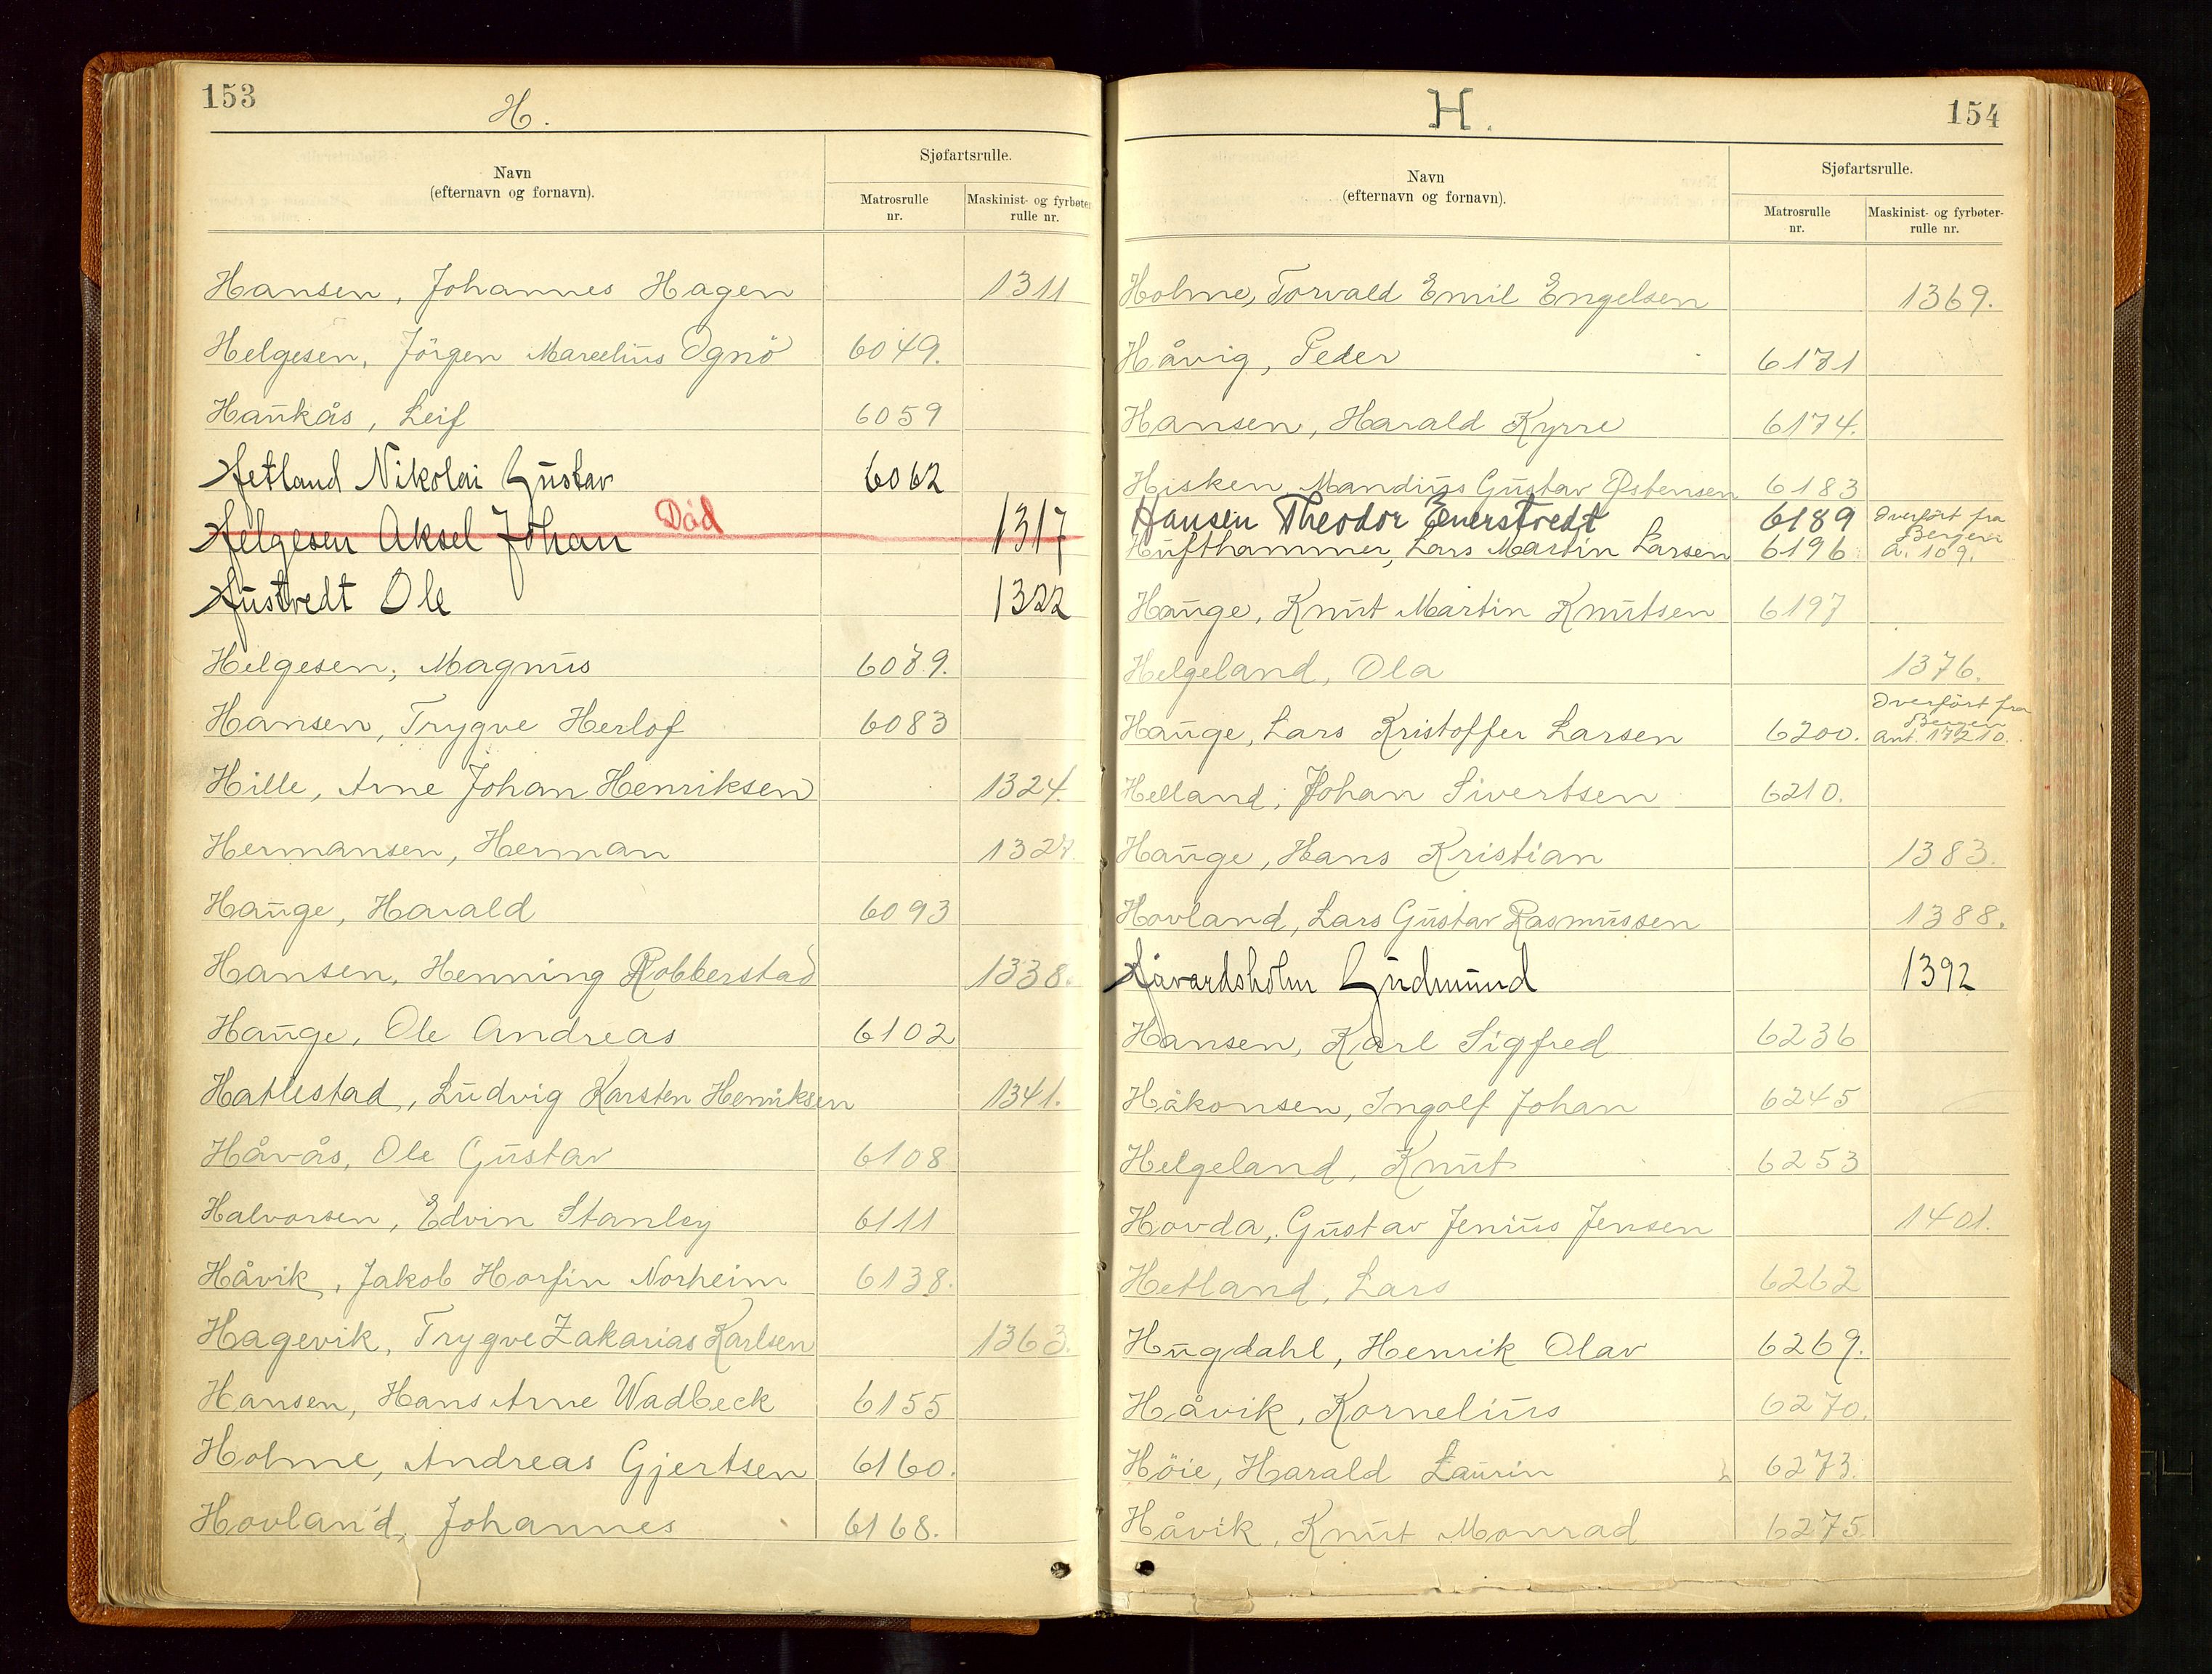 153
H.
Navn
(efternavn og fornavn).
Sjøfartsrulle.
Matrosrulle
nr.
Maskinist- og fyrbøter
rulle nr.
Hansen, Johannes Hagen 1311
Helgesen, Jörgen Marcelius Ognö 6049.
Haukås, Leif 6059
Hetland Nikolai Gustav 6062
Helgesen Aksel Johan Död 1317
Hustvedt Ole 1322
Helgesen, Magnus 6079.
Hansen, Trygve Herlof 6083
Hille, Arne Johan Henriksen 1324.
Hermansen, Herman 1327
Hauge, Harald 6093
Hansen, Henning Robberstad 1338.
Hauge, Ole Andreas 6102
Hatlestad, Ludvig Karsten Henriksen 1341.
Håvås, Ole Gustav 6108
Halvorsen, Edvin Stanley 6111
Håvik, Jakob Horfin Norheim 6138.
Hagevik, Trygve Zakarias Karlsen 1363.
Hansen, Hans Arne Wadbeck 6155
Holme, Andreas Gjertsen 6160.
Hovland, Johannes 6168.
H.
154
Navn
(efternavn og fornavn).
Sjøfartsrulle.
Matrosrulle
nr.
Maskinist- og fyrbøter-
rulle nr.
Holme, Torvald Emil Engelsen 1369.
Håvig, Peder 6171
Hansen, Harald Kyrre 6174.
Hisken Mandius Gustav Østensen 6183
Hansen Theodor Enerstvedt 6189 Overfört fra
Bergen
Hufthammer, Lars Martin Larsen 6196 a. 109.
Hauge, Knut Martin Knutsen 6197
Helgeland, Ola 1376.
Overfört fra
Bergen
Hauge, Lars Kristoffer Larsen 6200. ant. 17210.
Helland, Johan Sivertsen 6210.
Hauge, Hans Kristian 1383.
Hovland, Lars Gustav Rasmussen 1388.
Håvardsholm Gudmund 1392
Hansen, Karl Sigfred 6236
Håkonsen, Ingolf Johan 6245
Helgeland, Knut 6253
Hovda, Gustav Jenius Jensen 1401.
Hetland, Lars 6262
Hugdahl, Henrik Olav 6269.
Håvik, Kornelius 6270.
Höie, Harald Laurin 6273.
Håvik, Knut Monrad 6275.